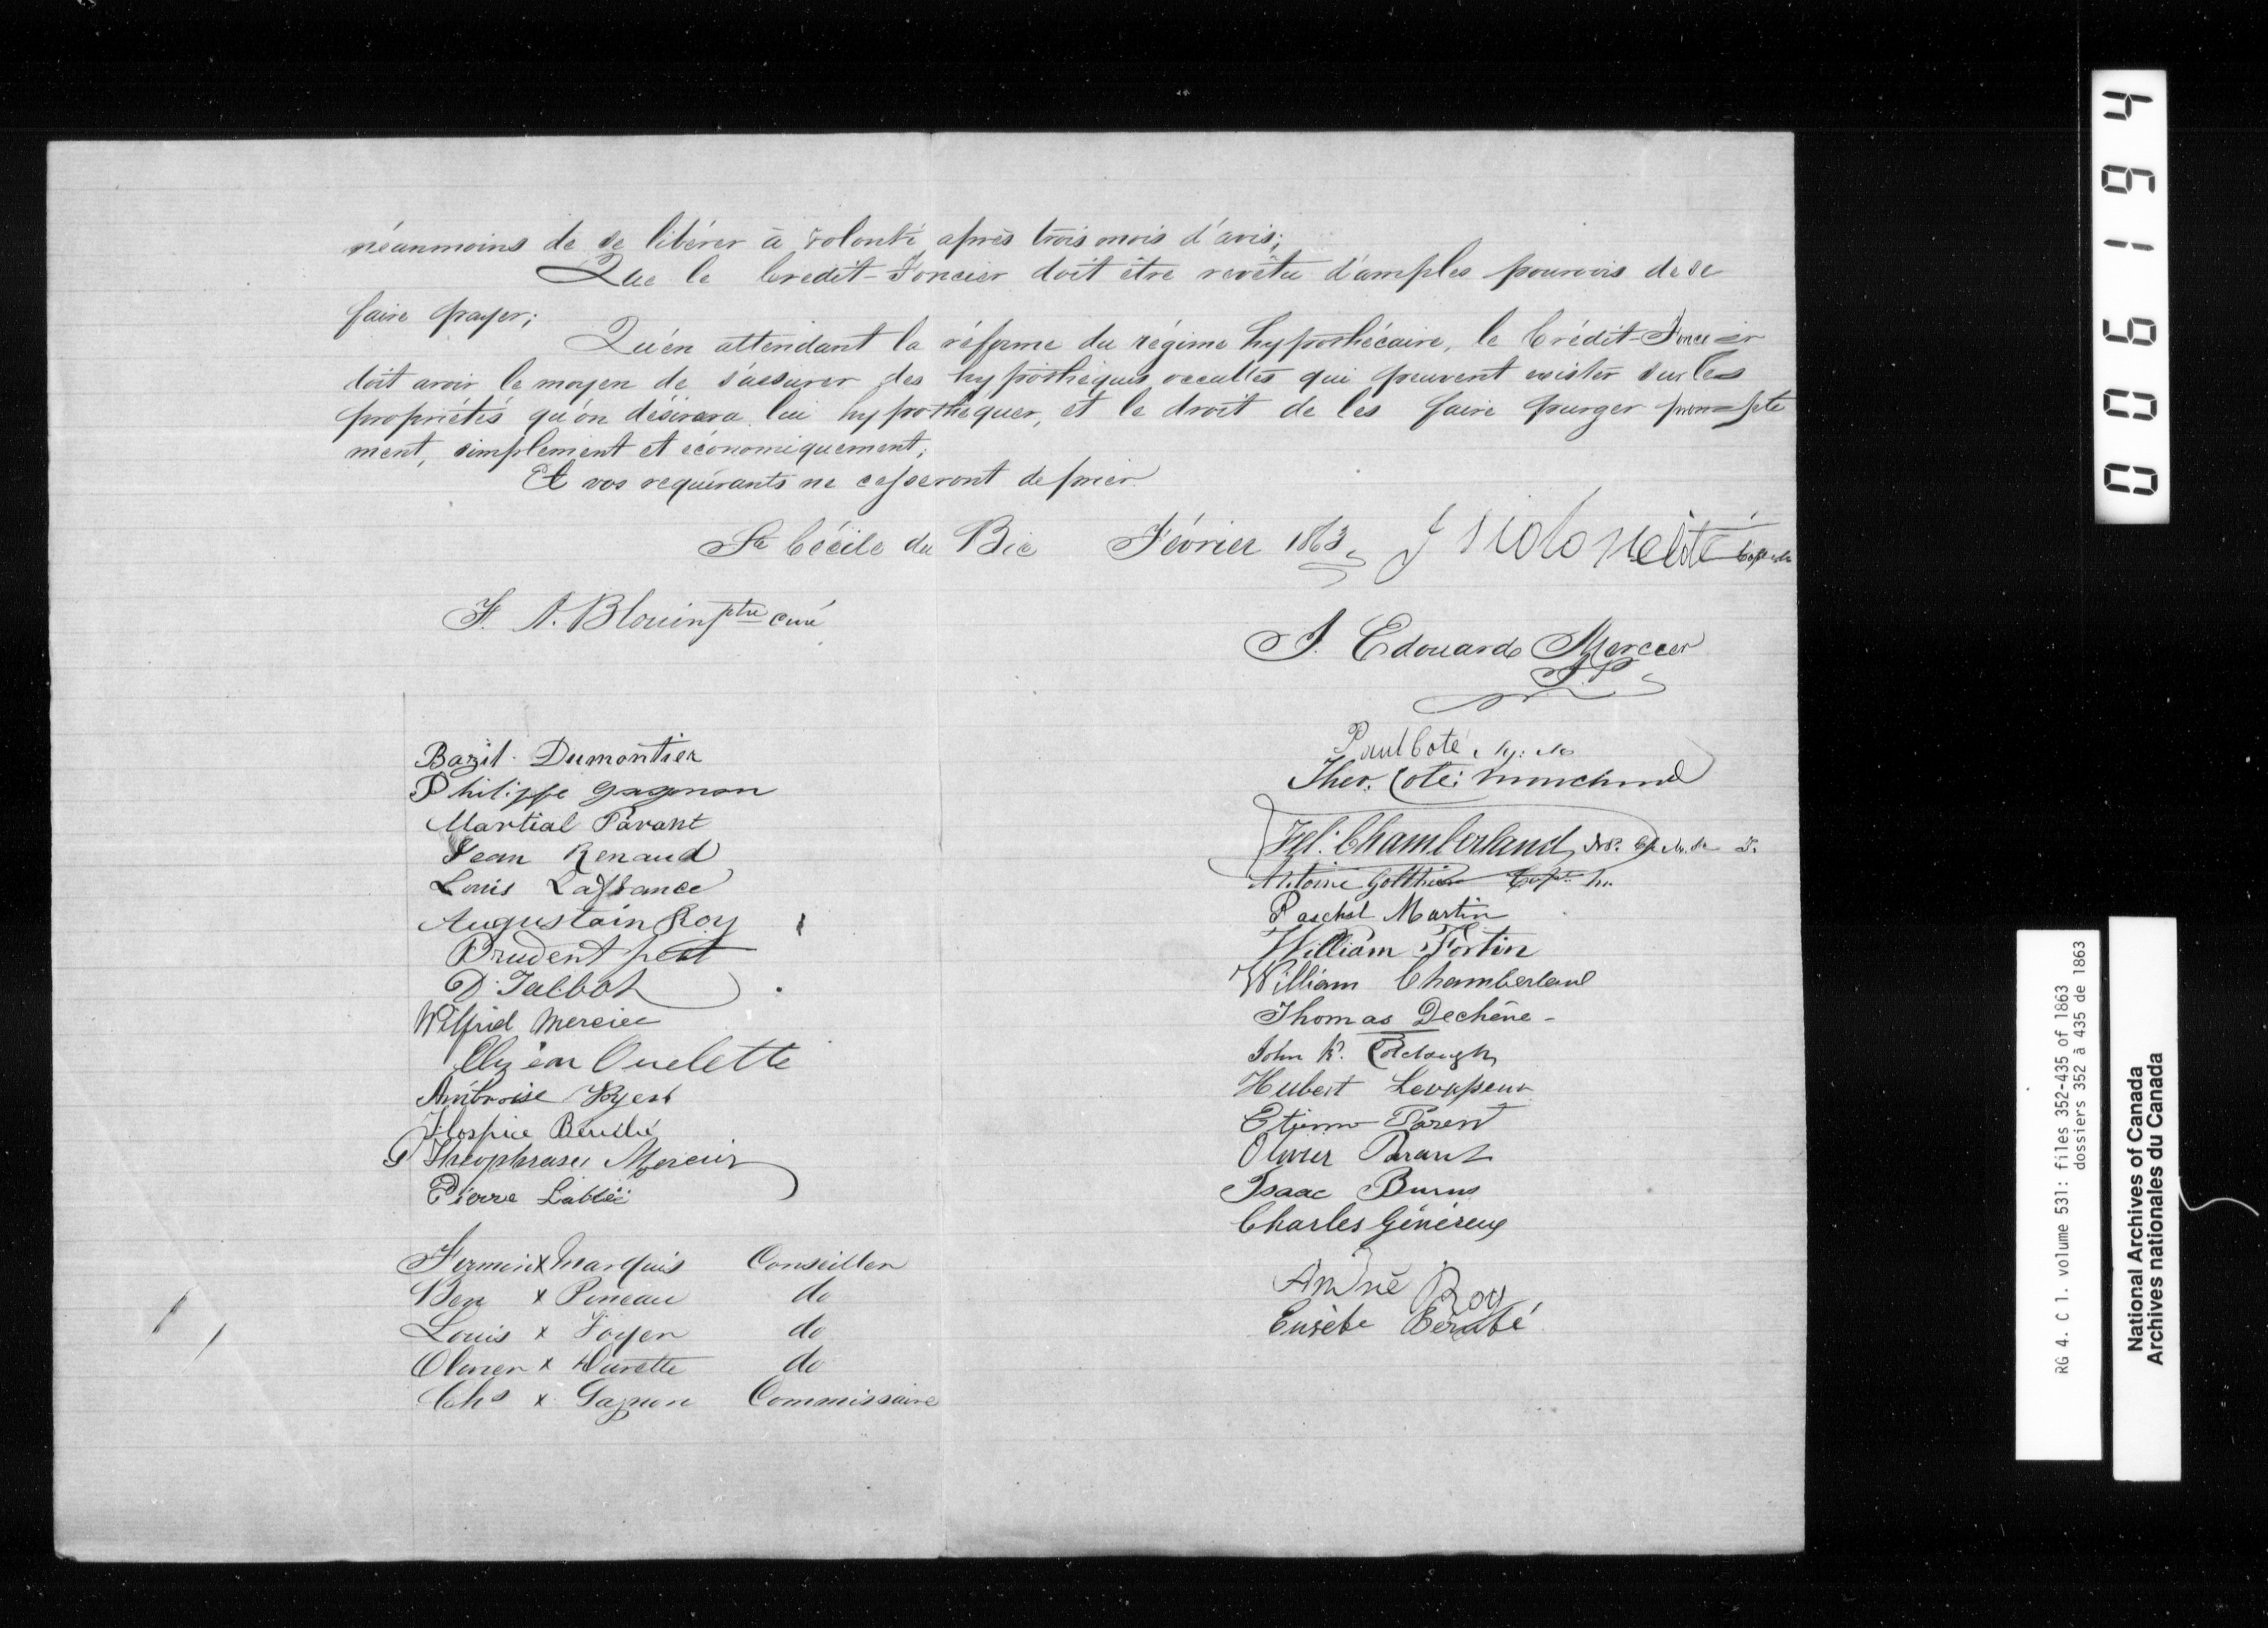 néanmoins de se libérer à volonté après trois mois d'avis;
Que le Crédit-Foncier doit être revêtu d'amples pouvoirs de se
faire payer;
Qu'en attendant la réforme du régime hypothécaire, le Crédit-Foncier
doit avoir le moyen de s'assurer des hypothèques occultes qui peuvent exister sur les
propriétés qu'on désirera lui hypothéquer, et le droit de les faire purger prompte
ment, simplement et économiquement;
Et vos requérants ne cesseront de prier
Ste Cécile du Bic Février 1863.
F. A. Blouin ptre curé
J. Edouard Mercier
J.P.
Bazil Dumontier
Philippe gagnon
Martial Parant
Jean Renaud
Louis Laffrance
Augustain Roy
Prudent
D. Talbot
Wilfrid Mercier
Ouelette
Ambroise
Hospice Bérubé
G Théophrase Mercier
Pierre Labbée
Fermin x Marquis Conseiller
Ben x Pineau do
Louis x do
Olivier x Durette do
Chs x Gagnon Commissaire
Paul Coté
Ther. Coté marchand
Fel: Chamberland, N.P.
Antoine Gotthier
Paschal Martin
William Fortin
William Chamberland
Thomas Dechêne -
John R. Colclough
Hubert Levasseur
Etienne Parent
Olivier Parant
Isaac Burns
Charles Généreux
André Roy
Eusèbe Bérubé
006194
RG 4. C 1. volume 531: files 352-435 of 1863
dossiers 352 à 435 de 1863
National Archives of Canada
Archives nationales du Canada